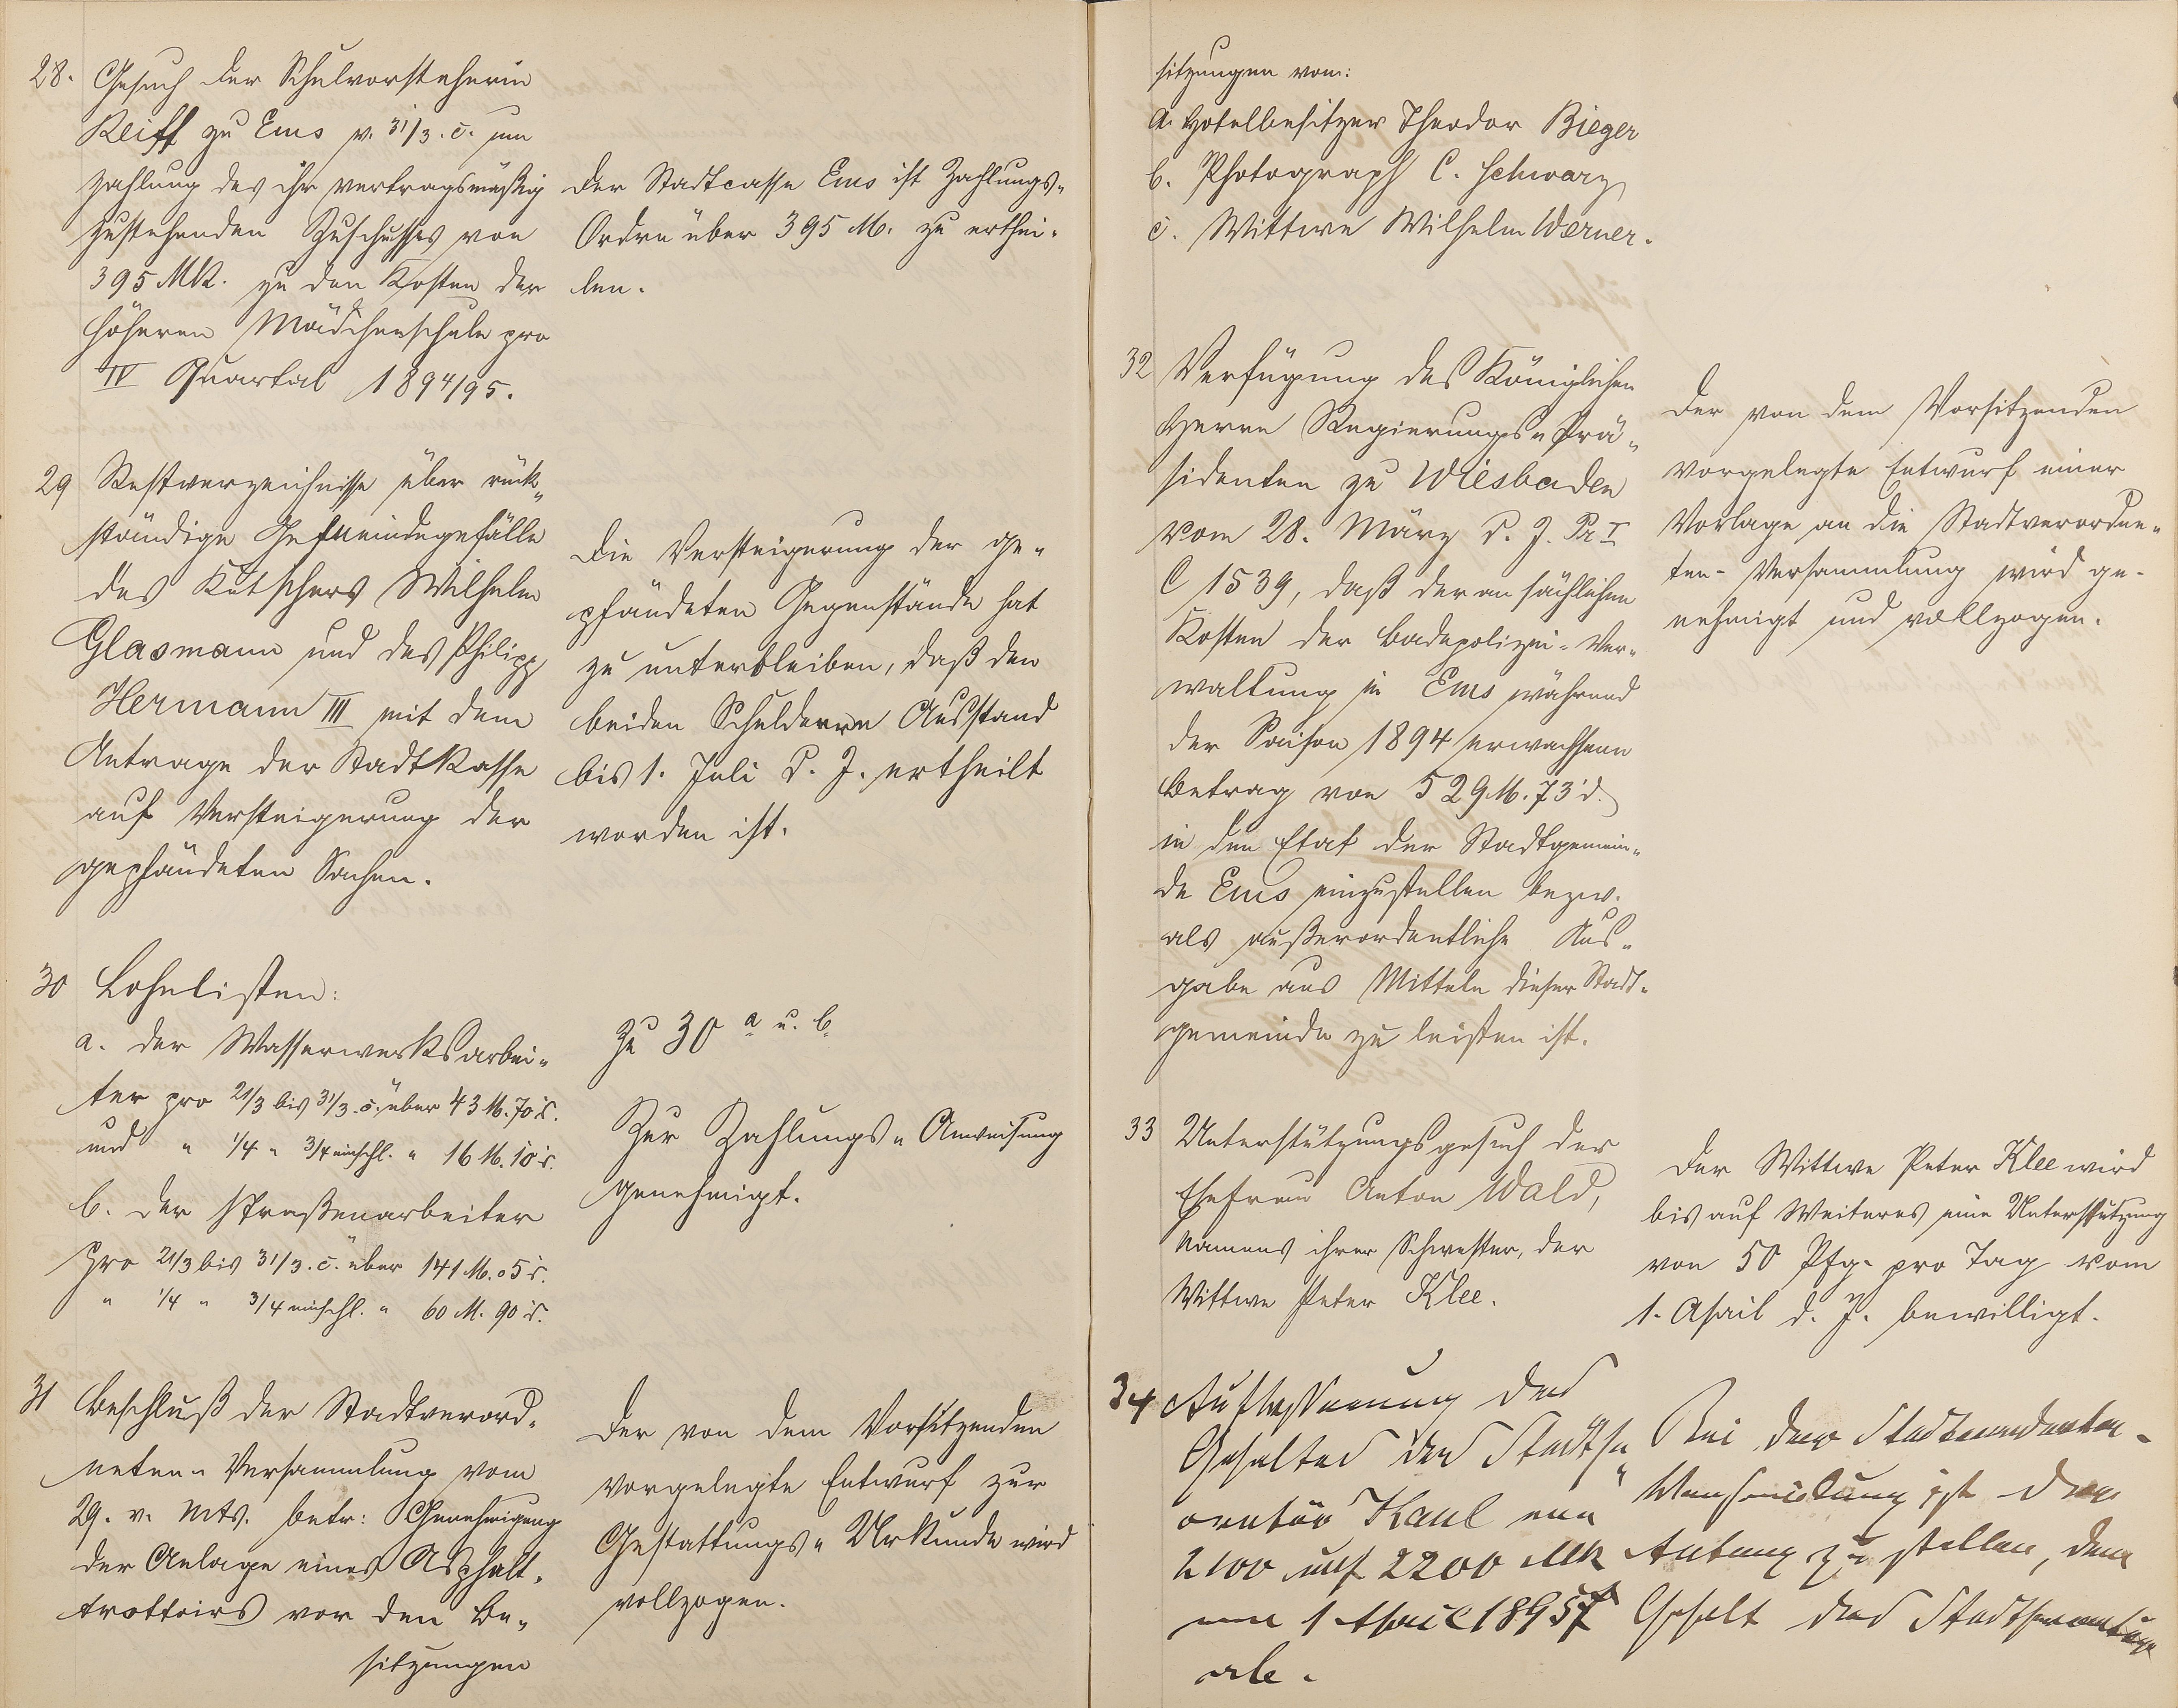 28. Gesuch der Schulvorsteherin
Reiff zu Ems v. 31/3. c. um
Zahlung des ihr vertragsmäßig
zustehenden Zuschusses von
395 Mk. zu den Kosten der
höheren Mädchenschule pro
IV Quartal 1894/95.
Der Stadtcasse Ems ist Zahlungs-
Ordre über 395 M. zu erthei-
len.
29 Restverzeichnisse über rück-
ständige Gemeindegefälle
des Kutschers Wilhelm
Glasmann und des Philipp
Hermann III mit dem
Antrage der Stadtkasse
auf Versteigerung der
gepfändeten Sachen.
Die Versteigerung der ge-
pfändeten Gegenstände hat
zu unterbleiben, daß den
beiden Schuldnern Ausstand
bis 1. Juli d. J. ertheilt
worden ist.
30 Lohnlisten:
a. der Wasserwerksarbei-
ter pro 21/3 bis 31/3. c. über 43 M. 70 d.
und " 1/4 " 3/4 einschl. " 16 M. 10 d.
b. der Straßenarbeiter
pro 21/3 bis 31/3. c. über 141 M. 05 d.
" 1/4 " 3/4 einschl. " 60 M. 90 d.
Zu 30 a u. b.
Zur Zahlungs-Anweisung
genehmigt.
31 Beschluß der Stadtverord-
neten-Versammlung vom
29. v. Mts. betr: Genehmigung
der Anlage eines Asphalt-
trottoirs vor den Be-
sitzungen
Der von dem Vorsitzenden
vorgelegte Entwurf zur
Gestattungs-Urkunde wird
vollzogen.
sitzungen von:
a. Hotelbesitzer Theodor Bieger
b. Photograph C. Schwarz
c. Wittwe Wilhelm Werner.
32 Verfügung des Königlichen
Herrn Regierungs-Prä-
sidenten zu Wiesbaden
vom 28. März d. J. Pr I
C 1539, daß der an sächlichen
Kosten der Badepolizei-Ver-
waltung in Ems während
der Saison 1894 erwachsene
Betrag von 529 M. 73 d.
in den Etat der Stadtgemein-
de Ems einzustellen bezw.
als außerordentliche Aus-
gabe aus Mitteln dieser Stadt-
gemeinde zu leisten ist.
Der von dem Vorsitzenden
vorgelegte Entwurf einer
Vorlage an die Stadtverordne-
ten-Versammlung wird ge-
nehmigt und vollzogen.
33 Unterstützungsgesuch der
Ehefrau Anton Wald,
Namens ihrer Schwester, der
Wittwe Peter Klee.
Der Wittwe Peter Klee wird
bis auf Weiteres eine Unterstützung
von 50 Pfg. pro Tag vom
1. April d. J. bewilligt.
34 Aufbesserung des
Gehaltes des Stadtse-
cretär Kaul von
2100 auf 2200 Mk
vom 1 April 1895
ab.
Bei der Stadtverordneten-
Versammlung ist der
Antrag zu stellen, dem
Gehalt des Stadtsecretärs